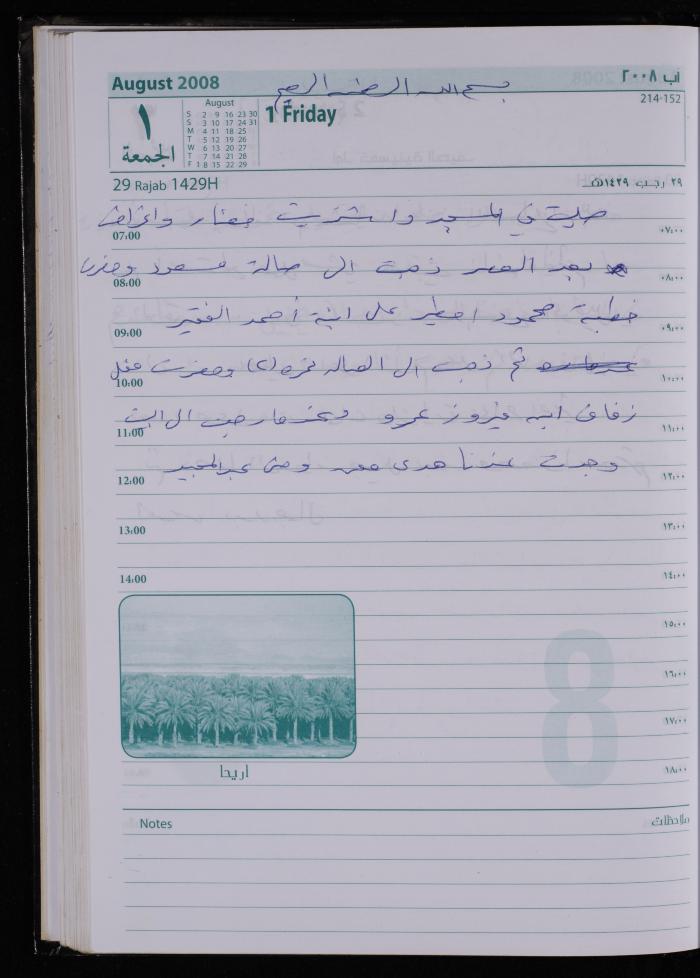 August 2008
بسم الله الرحمن الرحيم
آب ٢٠٠٨
214-152
١
الجمعة
August
S 2 9 16 23 30
S 3 10 17 24 31
M 4 11 18 25
T 5 12 19 26
W 6 13 20 27
T 7 14 21 28
F 1 8 15 22 29
1 Friday
29 Rajab 1429H
٢٩ رجب ١٤٢٩هـ
صليت في المسجد واشتريت خضار واغراض
07:00 ٠٧:٠٠
بعد العصر ذهبت الى صالة مسعود وحضرنا
08:00 ٠٨:٠٠
خطبة محمود اخطير على ابنة أحمد الفقير
09:00 ٠٩:٠٠
ثم ذهبت الى الصالة نمره (٢) وحضرت حفل
10:00 ١٠:٠٠
زفاف ابنه فيروز عمرو وعندما رجعت الى البيت
11:00 ١١:٠٠
وجدت عندنا هدى ومنى عبد المجيد
12:00 ١٢:٠٠
13:00 ١٣:٠٠
14:00 ١٤:٠٠
١٥:٠٠
١٦:٠٠
١٧:٠٠
١٨:٠٠
8
اريحا
Notes ملاحظات